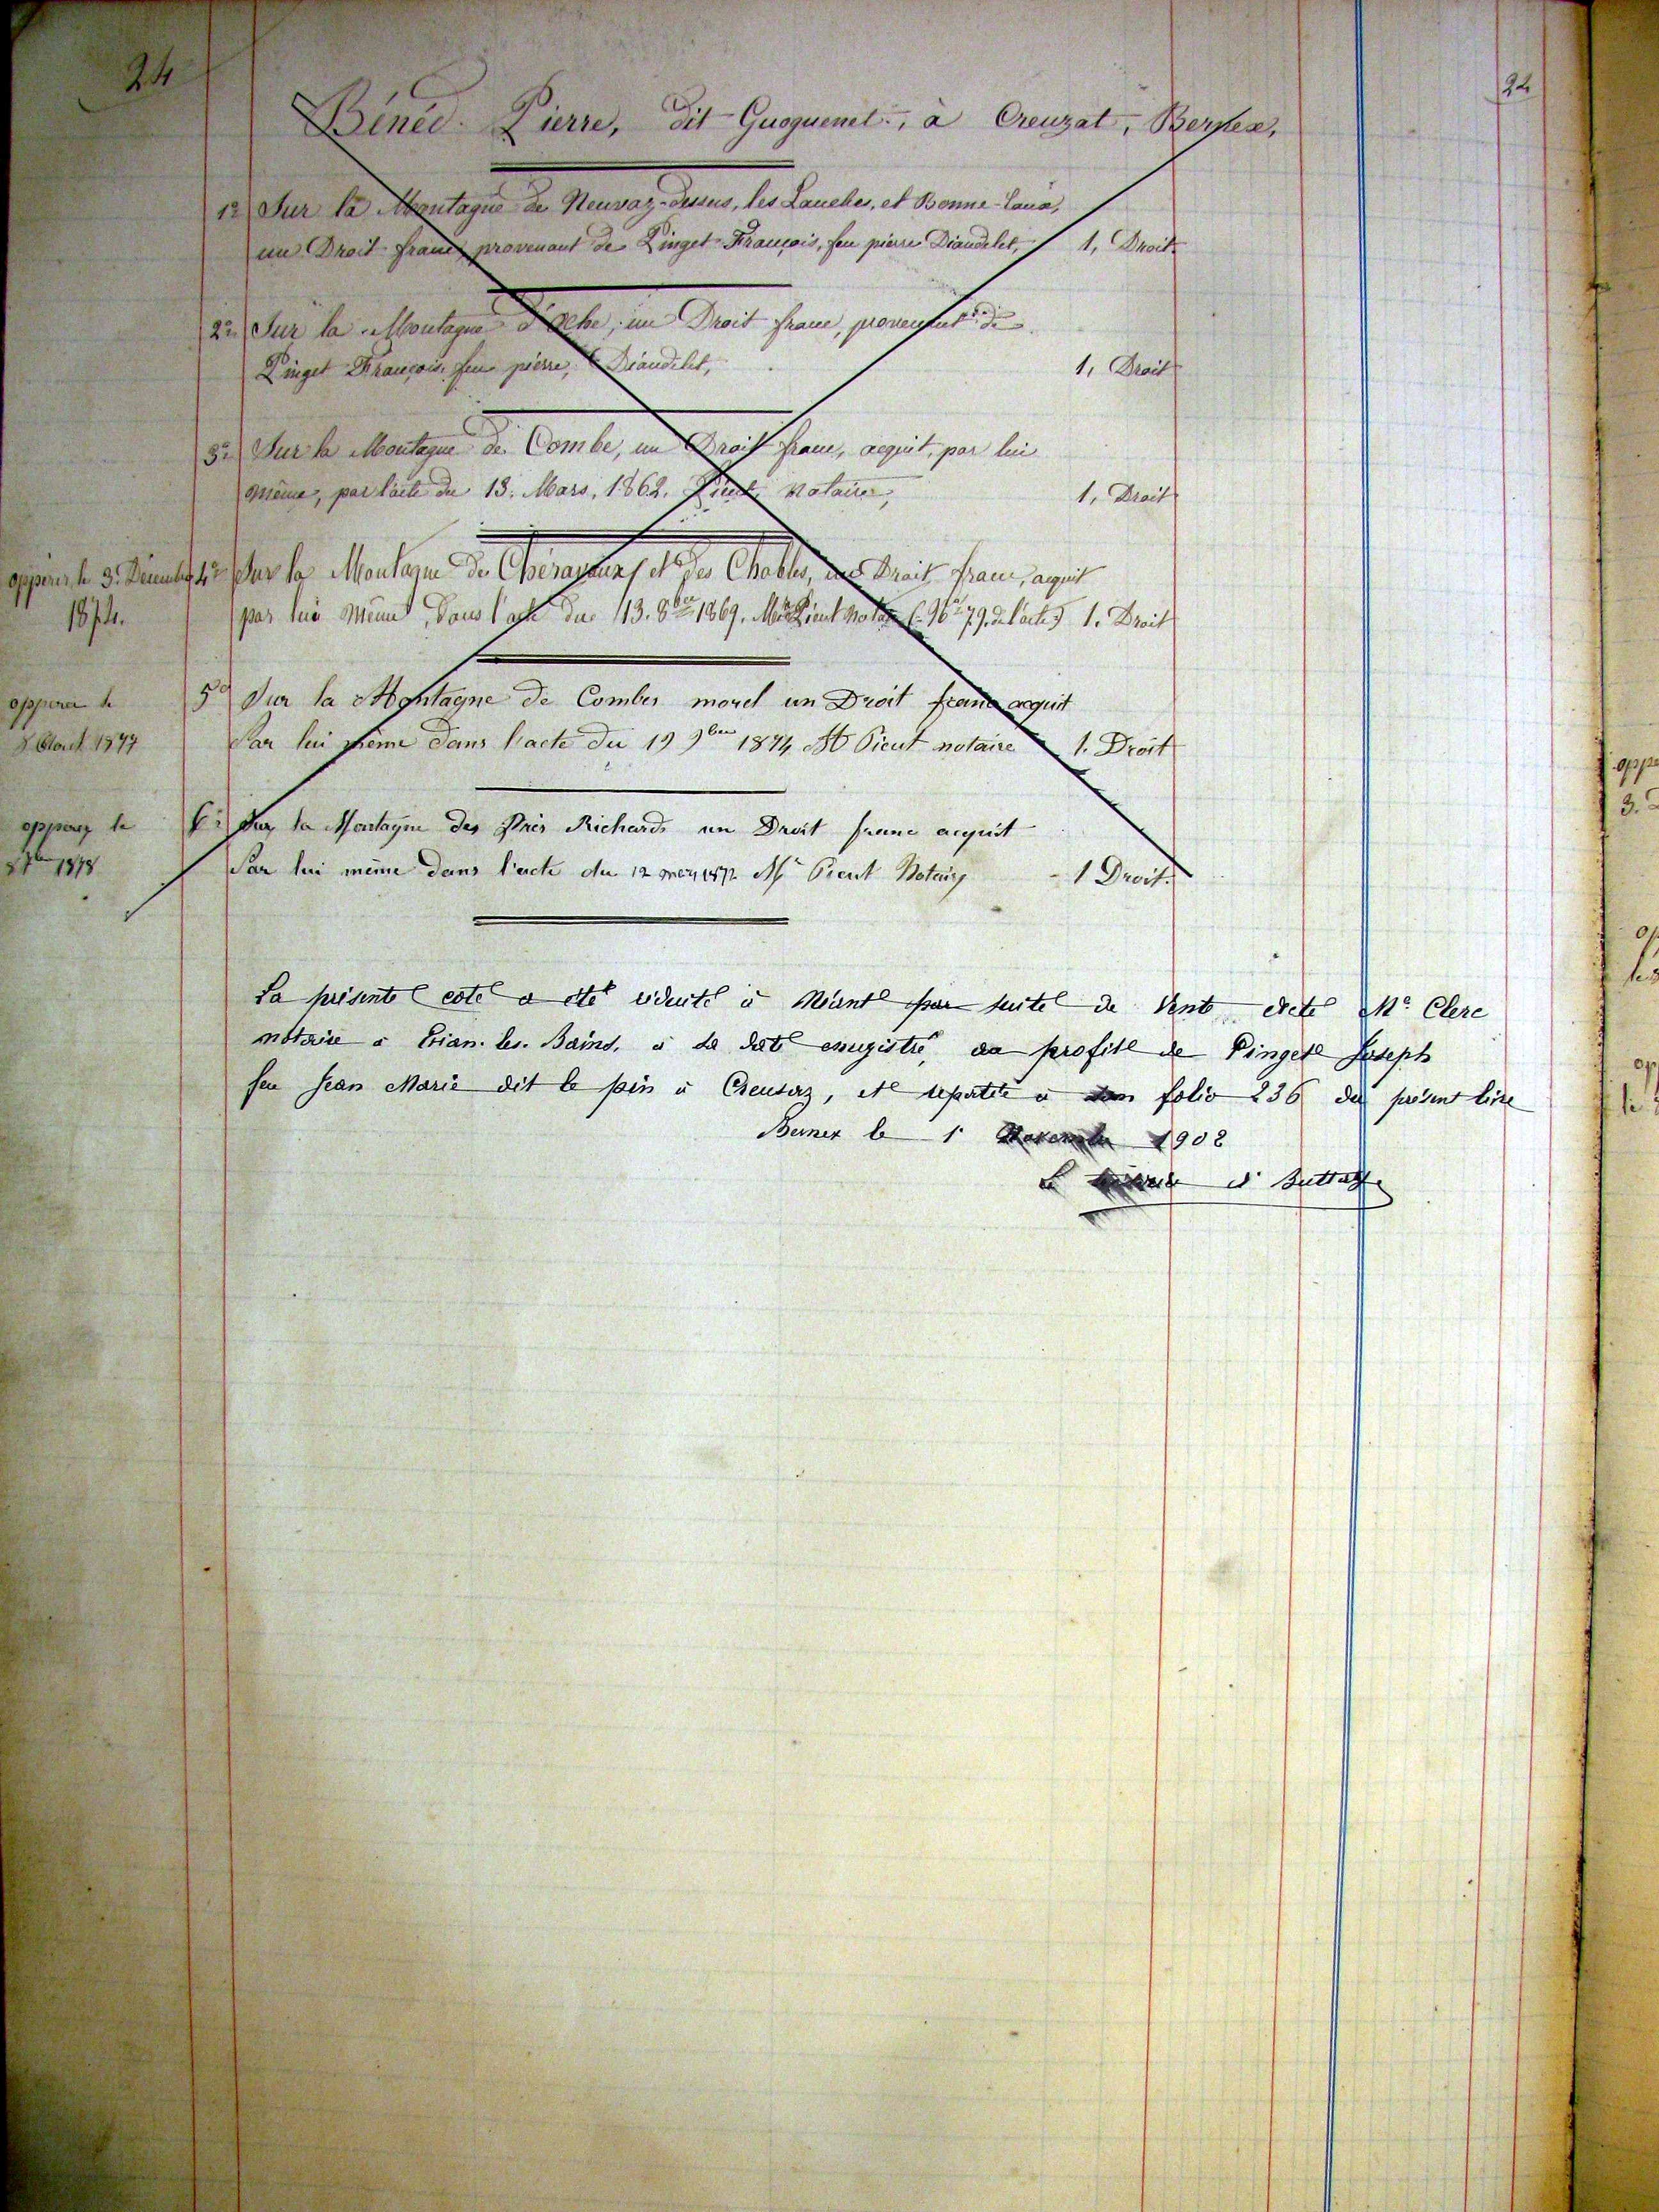 24
24
Bénéd Pierre, dit Guoguenet, à Creuzat, Bernex,
1º Sur la Montagne de Neuvaz-dessus, les Lanches, et Bonne-Eaux,
un Droit franc, provenant de Pinget François, feu pierre Diaudelet, 1, Droit
2º Sur la Montagne d'Oche, un Droit franc, provenant de
Pinget François, feu pierre, Diaudelet, 1, Droit
3º Sur la Montagne de Combe, un Droit franc, acquit, par lui
même, par l'acte du 13. Mars, 1862. Pieut, Notaire, 1, Droit
4º Sur la Montagne de et des Chables, un Droit franc, acquit
1874.
par lui même, dans l'acte du 13. 8bre 1869. Me Pieut Notaire (Nº 79. de l'acte) 1. Droit
5º Sur la Montagne de Combes morel un Droit franc acquit
Par lui même dans l'acte du 19 9bre 1874 Me Pieut notaire 1. Droit
6º Sur la Montagne des Près Richards un Droit franc acquit
Par lui même dans l'acte du 12 1872 Me Pieut Notaire 1 Droit.
La présente cote a été réduite à Néant par suite de Vente acte Me Clerc
notaire à Evian. les. Bains, à la date enregistré, au profit de Pinget Joseph
feu Jean Marie dit le à Creusaz, et reportée à folio 236 du présent livre
Bernex le 1 Novembre 1902
Le